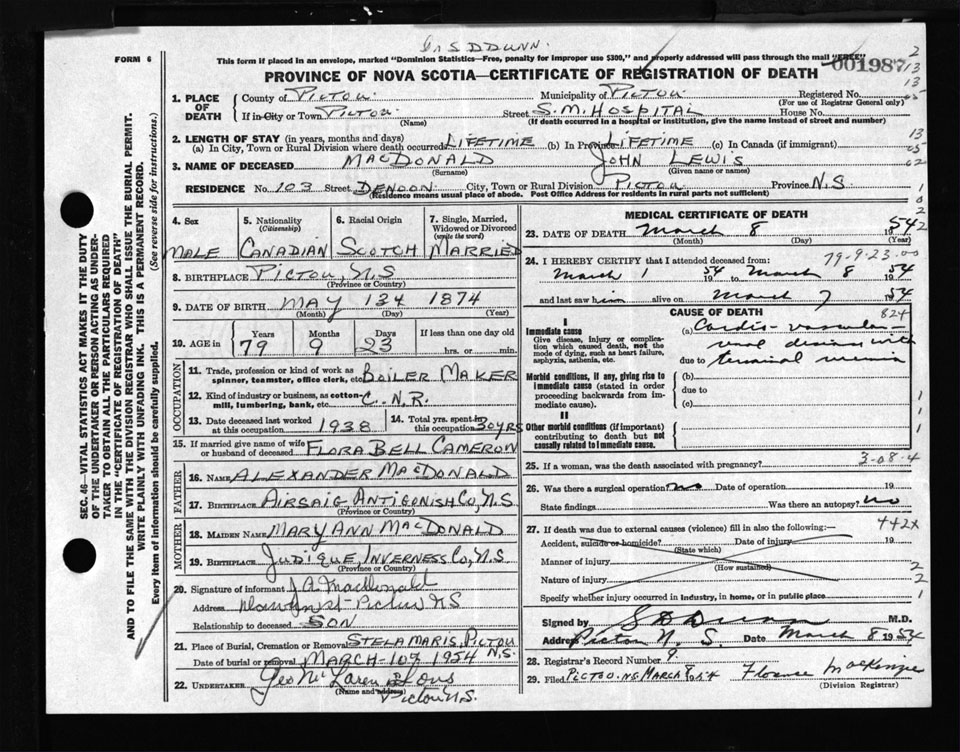 Dr S D DUNN.
FORM 6
This form if placed in an envelope, marked "Dominion Statistics—Free, penalty for improper use $300," and properly addressed will pass through the mail "FREE"
001987
PROVINCE OF NOVA SCOTIA—CERTIFICATE OF REGISTRATION OF DEATH
1. PLACE OF DEATH County of PICTOU. Municipality of PICTOU Registered No.
(For use of Registrar General only)
If in City or Town PICTOU Street S.M. HOSPITAL House No.
(Name) (If death occurred in a hospital or institution, give the name instead of street and number)
2. LENGTH OF STAY (in years, months and days)
(a) In City, Town or Rural Division where death occurred LIFETIME (b) In Province LIFETIME (c) In Canada (if immigrant)
3. NAME OF DECEASED MACDONALD JOHN LEWIS
(Surname) (Given name or names)
RESIDENCE No. 103 Street DENOON City, Town or Rural Division PICTOU Province N.S
(Residence means usual place of abode. Post Office Address for residents in rural parts not sufficient)
4. Sex 5. Nationality (Citizenship) 6. Racial Origin 7. Single, Married, Widowed or Divorced (write the word)
MALE CANADIAN SCOTCH MARRIED
8. BIRTHPLACE PICTOU, N.S
(Province or Country)
9. DATE OF BIRTH MAY 13th 1874
(Month) (Day) (Year)
10. AGE in Years Months Days If less than one day old
79 9 23 hrs. or min.
OCCUPATION
11. Trade, profession or kind of work as spinner, teamster, office clerk, etc. BOILER MAKER
12. Kind of industry or business, as cotton-mill, lumbering, bank, etc. C.N.R.
13. Date deceased last worked at this occupation 1938 14. Total yrs. spent in this occupation 30 YRS
15. If married give name of wife or husband of deceased FLORA BELL CAMERON
FATHER
16. NAME ALEXANDER MACDONALD
17. BIRTHPLACE AIRSAIG, ANTIGONISH CO, N.S
(Province or Country)
MOTHER
18. MAIDEN NAME MARY ANN MACDONALD
19. BIRTHPLACE JUDIQUE, INVERNESS CO, N.S.
(Province or Country)
20. Signature of informant J.A. MacDonald
Address Pictou NS
Relationship to deceased SON
21. Place of Burial, Cremation or Removal STELAMARIS, PICTOU N.S.
Date of burial or removal MARCH 10th 1954
22. UNDERTAKER Geo McLaren & Sons
(Name and address)
Pictou N.S.
MEDICAL CERTIFICATE OF DEATH
23. DATE OF DEATH March 8 1954
(Month) (Day) (Year)
79-9-23-00
24. I HEREBY CERTIFY that I attended deceased from:
March 1 1954 to March 8 1954
and last saw him alive on March 7 1954
CAUSE OF DEATH 824
I
Immediate cause
Give disease, injury or complication which caused death, not the mode of dying, such as heart failure, asphyxia, asthenia, etc.
(a) Cardio-vascular-renal disease with
due to terminal uremia
Morbid conditions, if any, giving rise to immediate cause (stated in order proceeding backwards from immediate cause).
(b)
due to
(c)
II
Other morbid conditions (if important) contributing to death but not causally related to immediate cause.
25. If a woman, was the death associated with pregnancy? 3-08-4
26. Was there a surgical operation? no Date of operation 19
State findings Was there an autopsy? no
27. If death was due to external causes (violence) fill in also the following:— 442x
Accident, suicide or homicide? Date of injury 19
(State which)
Manner of injury
(How sustained)
Nature of injury
Specify whether injury occurred in industry, in home, or in public place
Signed by S D Dunn M.D.
Address Pictou N. S. Date March 8 1954
28. Registrar's Record Number 9.
29. Filed PICTOU. NS. MARCH 8 1954 Florence MacKenzie
(Division Registrar)
SEC. 46—VITAL STATISTICS ACT MAKES IT THE DUTY
OF THE UNDERTAKER OR PERSON ACTING AS UNDER-
TAKER TO OBTAIN ALL THE PARTICULARS REQUIRED
IN THE "CERTIFICATE OF REGISTRATION OF DEATH"
AND TO FILE THE SAME WITH THE DIVISION REGISTRAR WHO SHALL ISSUE THE BURIAL PERMIT.
WRITE PLAINLY WITH UNFADING INK. THIS IS A PERMANENT RECORD.
Every item of information should be carefully supplied. (See reverse side for instructions.)